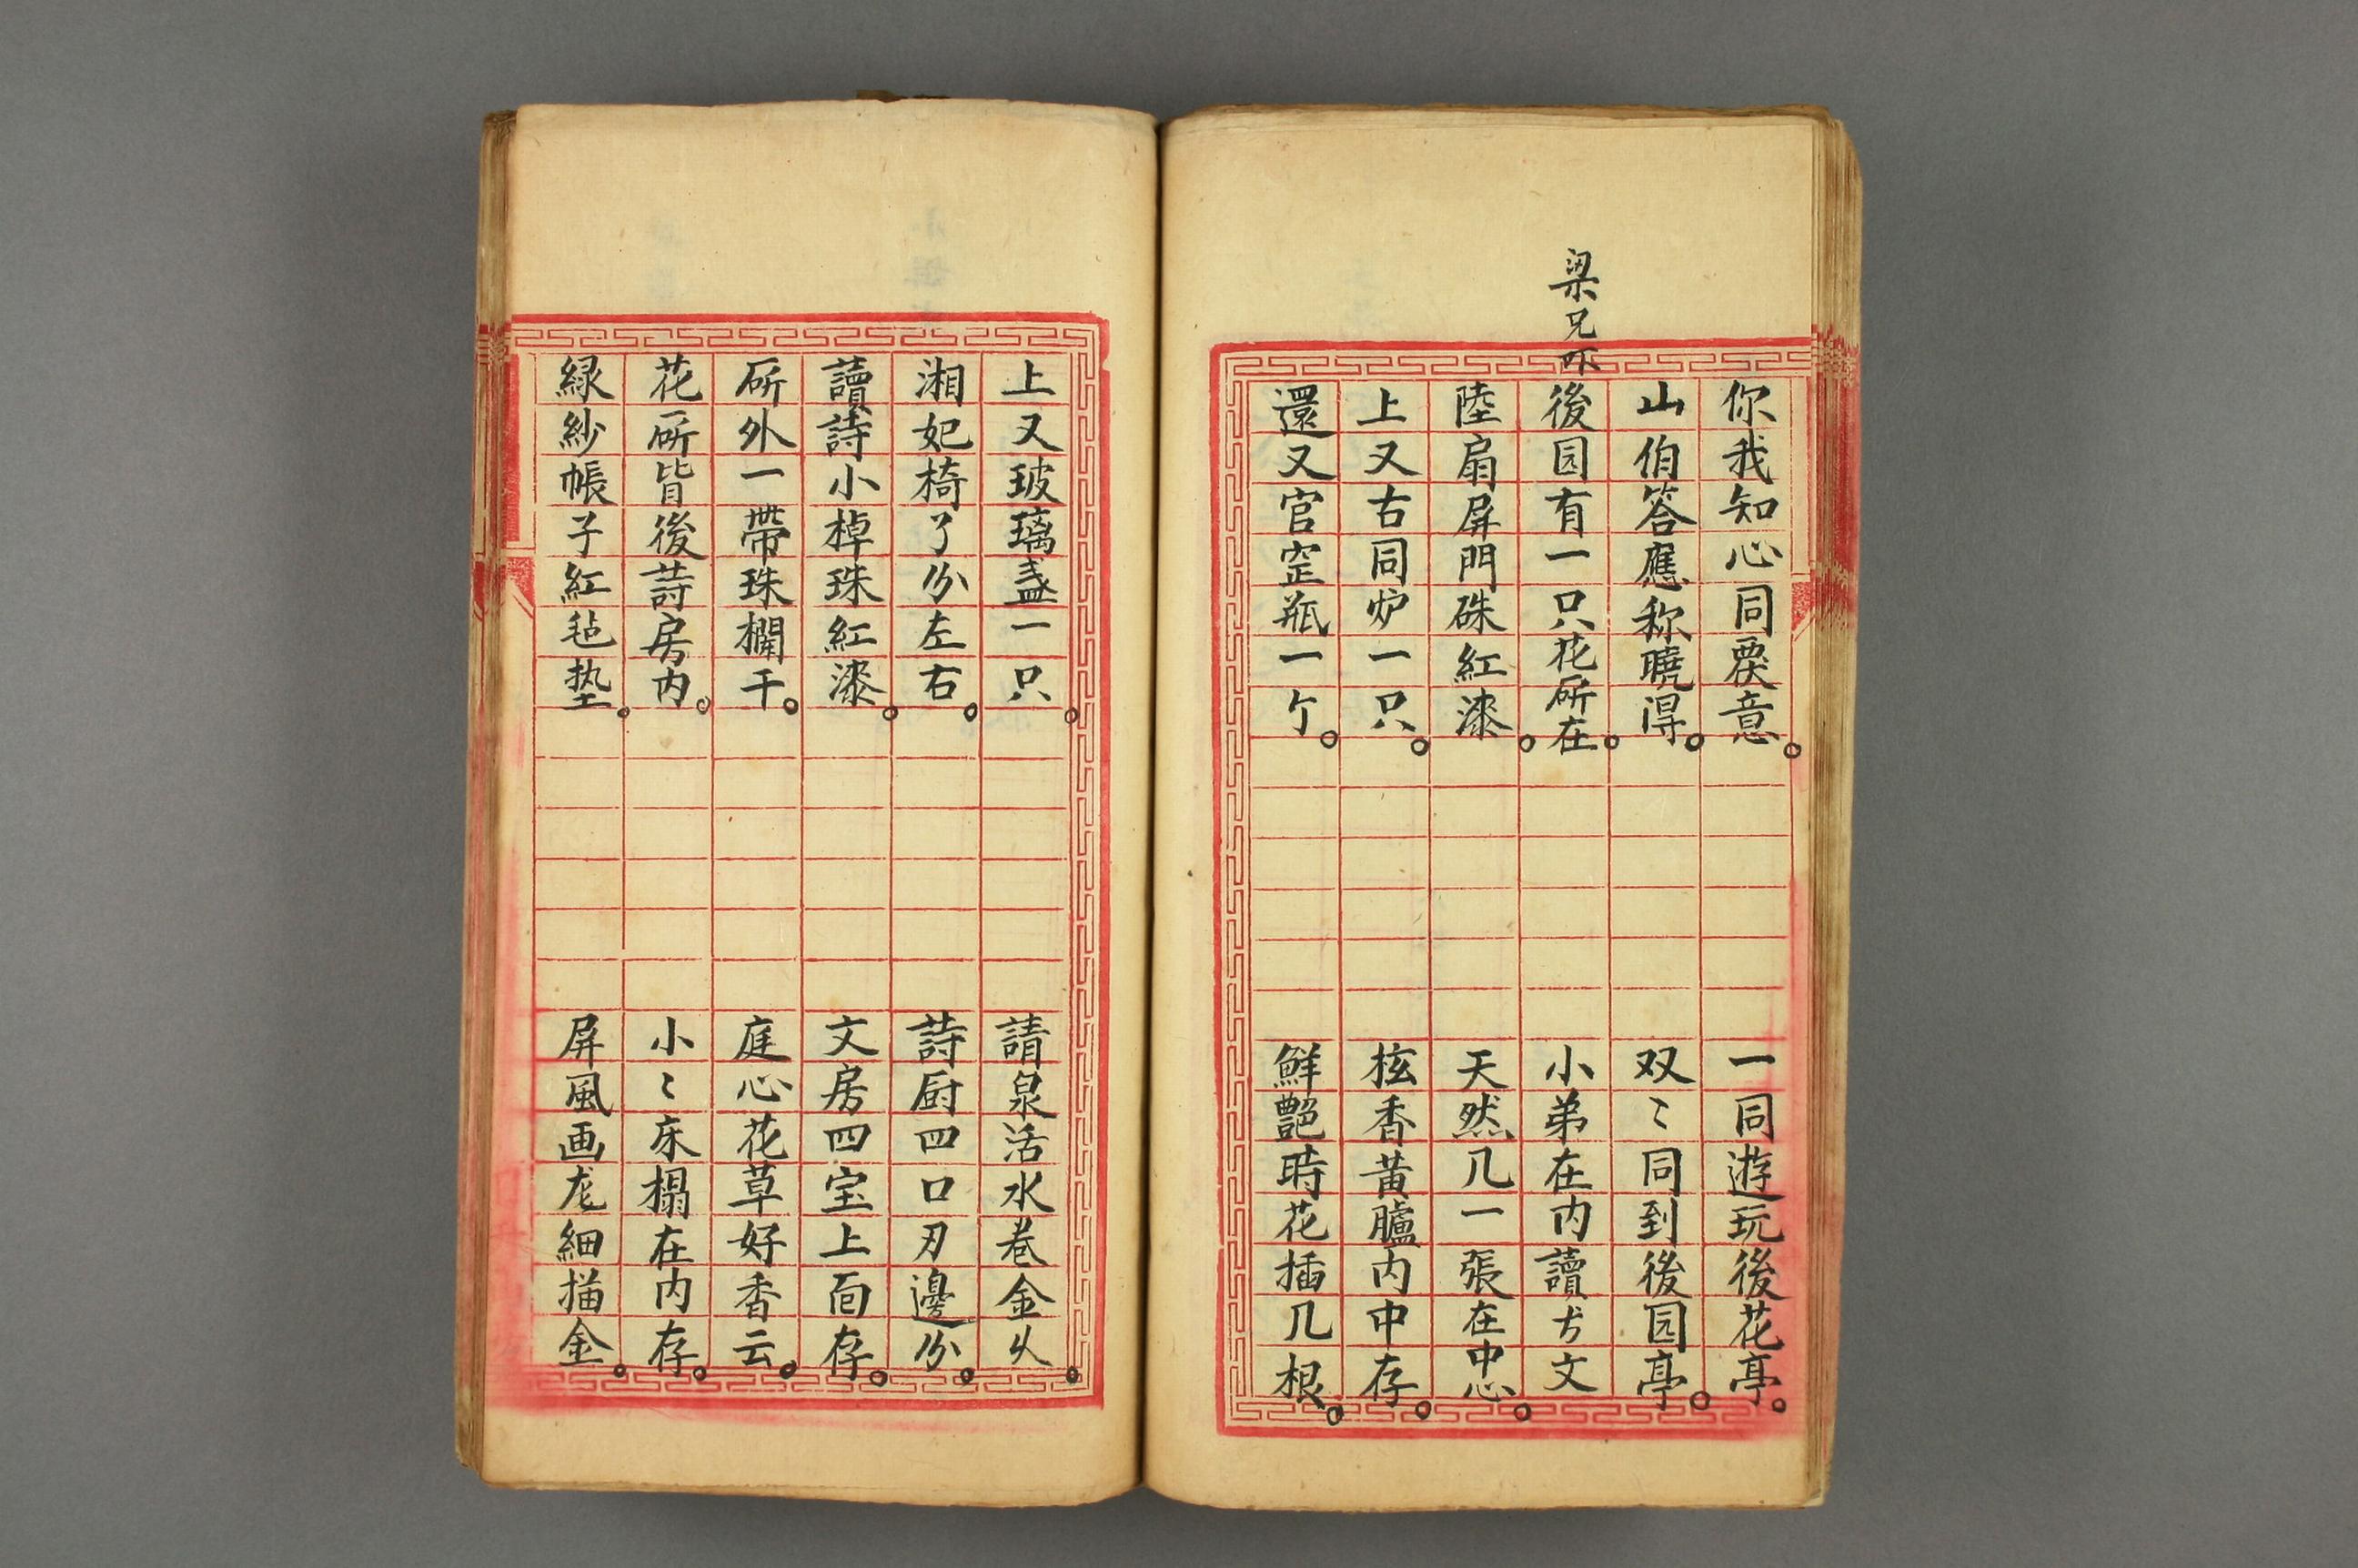 你我知心同䙴意。一同遊玩後花亭。
山伯答應称曉淂。双〻同到後园亭。
梁兄吓
後园有一只花所在。小弟在内讀文
陸扇屏門硃紅漆。天然几一張在中心。
上又右同炉一只。枟香黃臚内中存。
還又官窑瓶一亇。鮮艷時花插几根。
上又玻璃盞一只。請泉活水卷金
湘妃椅了分左右。詩厨四口刃邊分。
讀詩小棹珠紅漆。文房四宝上面存。
所外一帶珠欄干。庭心花草好香云。
花所皆後詩房内。小〻床榻在内存。
緑紗帳子紅毡垫。屏風画龙細描金。